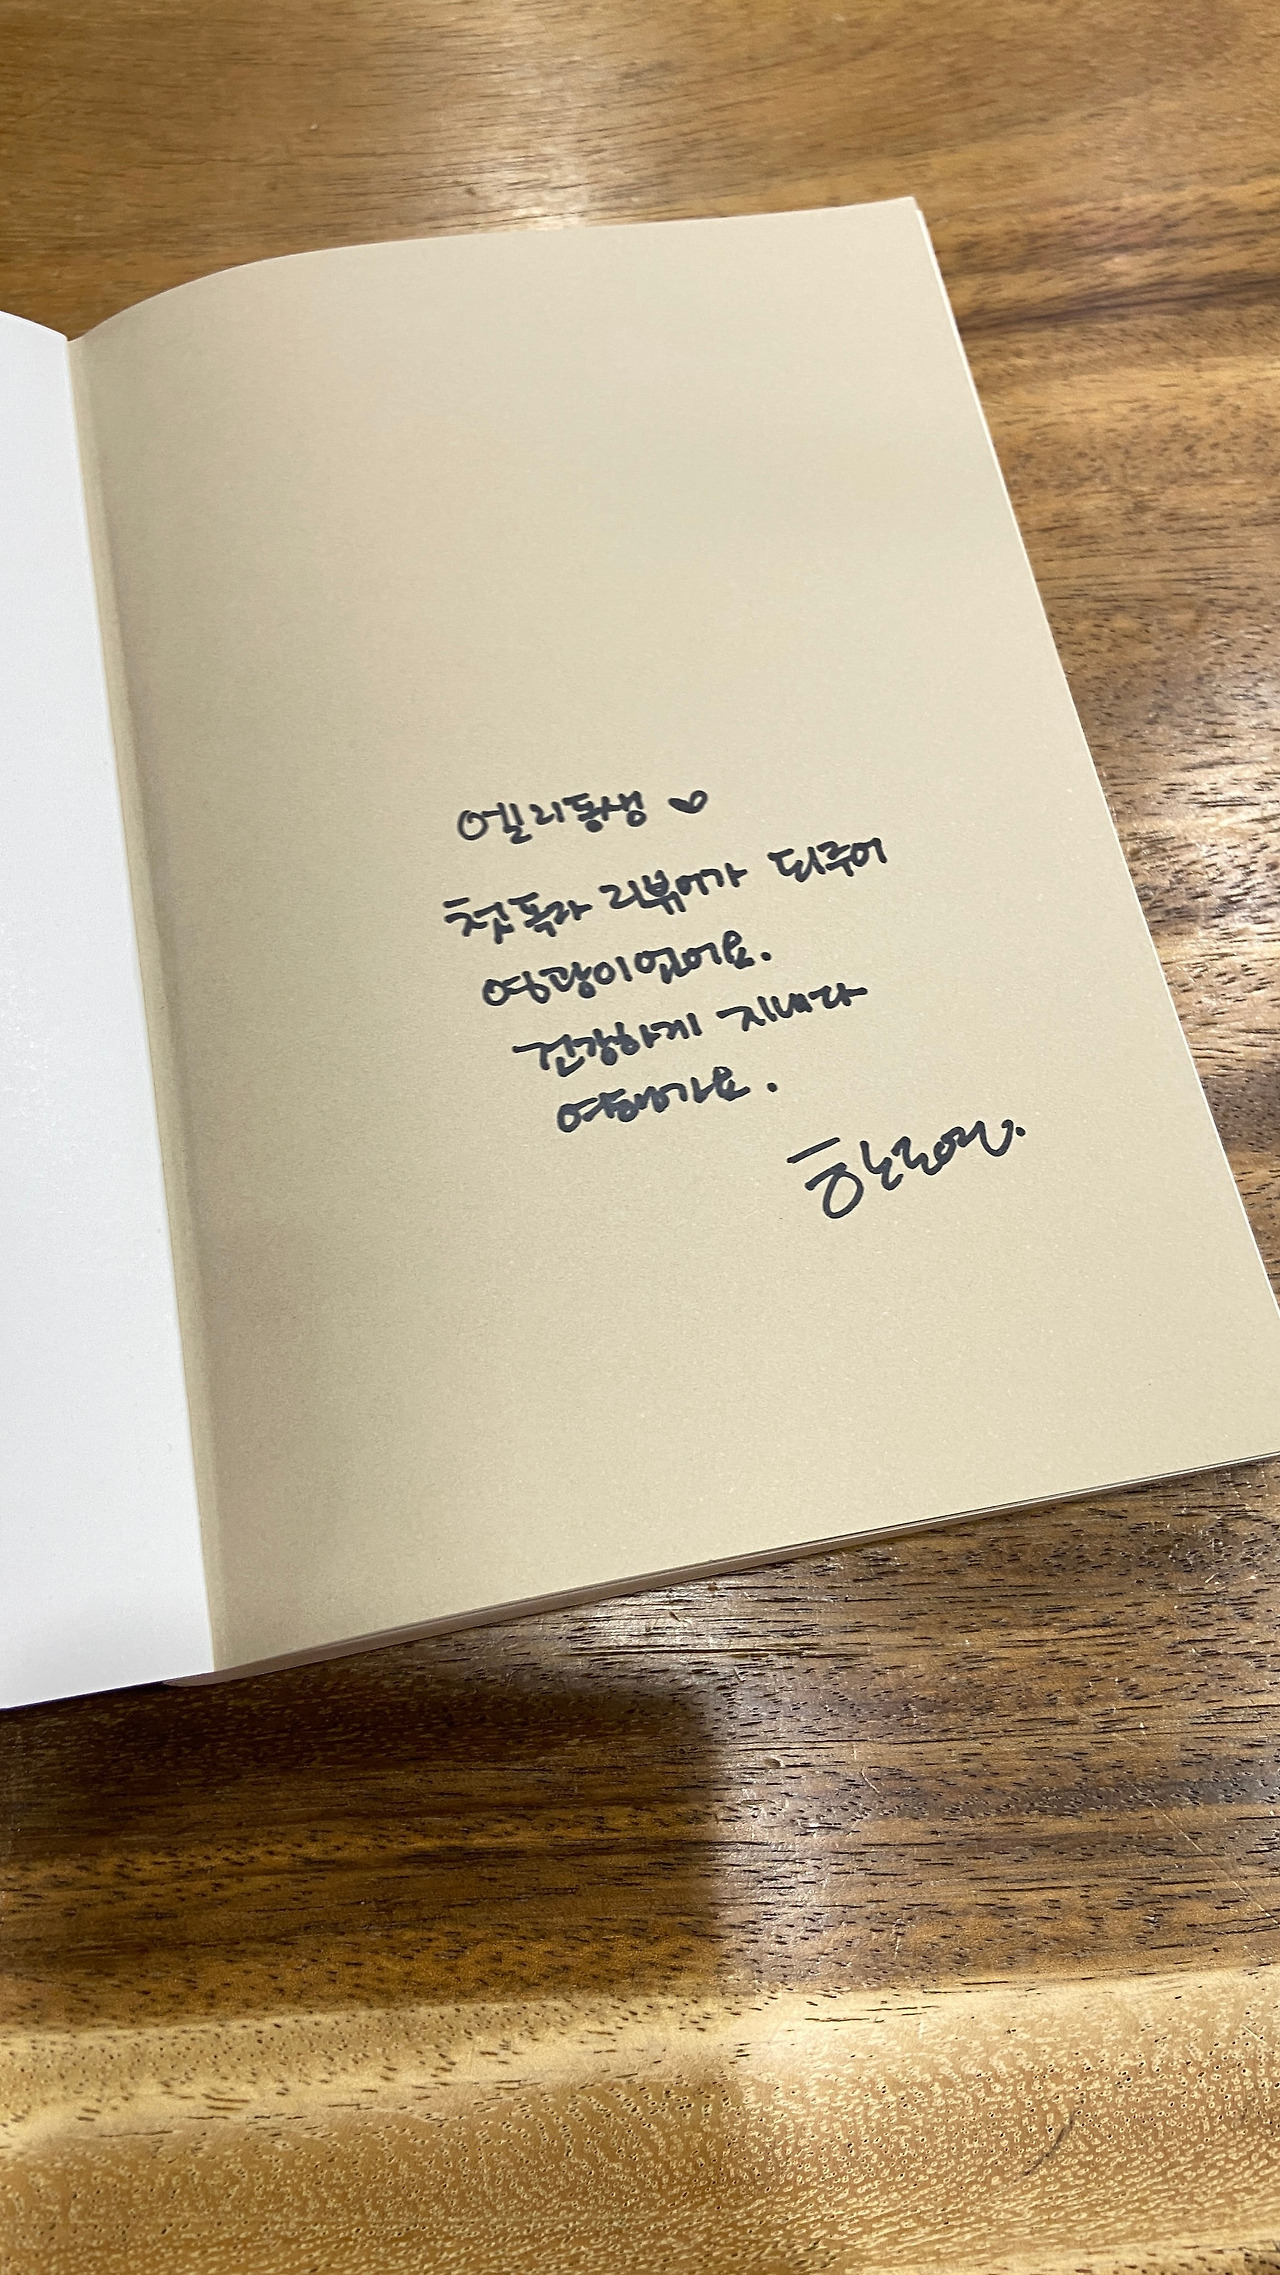 엘리동생 ♥
첫독자 리뷰어가 되주어
영광이었어요.
건강하게 지내다
여행가요.